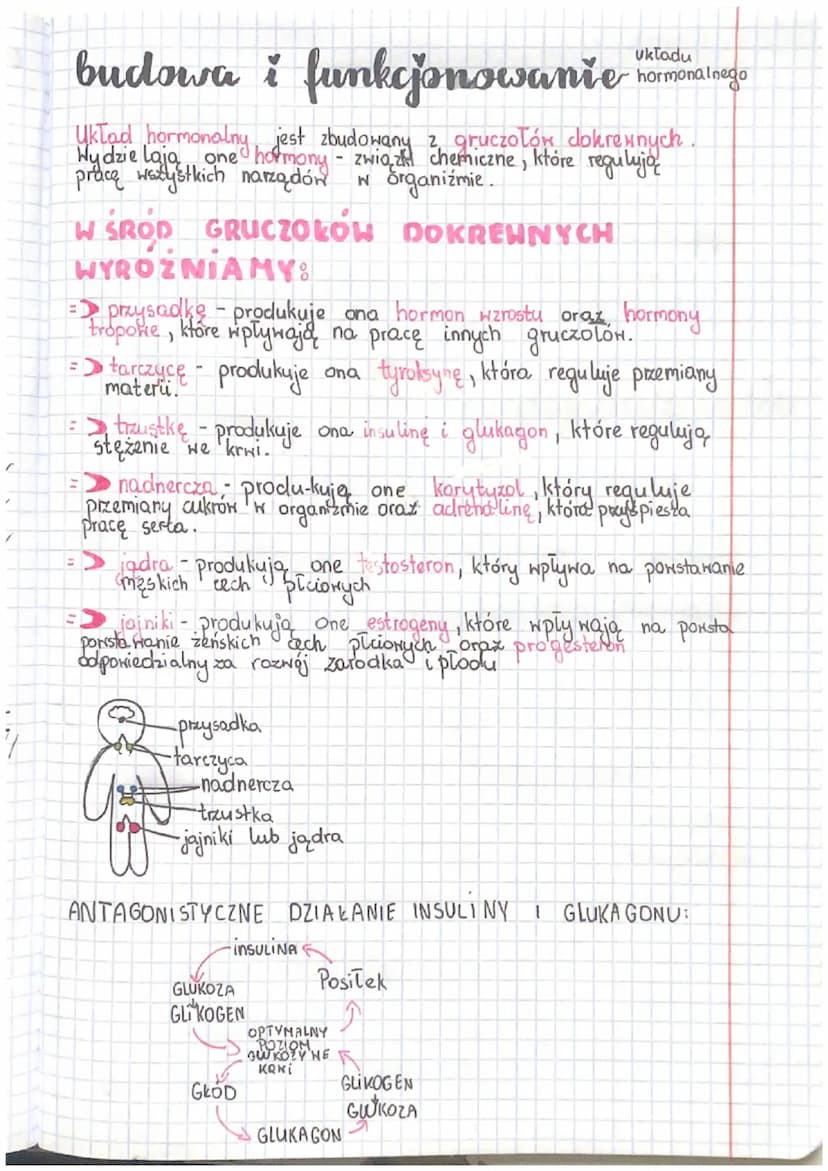 budowa i funkcjonowanie układu hormonalnego
Układ hormonalny jest zbudowany z gruczołów dokrewnych.
Wydzielają one hormony - związki chemiczne, które regulują
pracę wszystkich narządów w organizmie.
WŚRÓD GRUCZOŁÓW DOKREWNYCH
WYRÓŻNIAMY:
=> przysadkę - produkuje ona hormon wzrostu oraz hormony
tropowe, które wpływają na pracę innych gruczołów.
=> tarczycę - produkuje ona tyroksynę, która reguluje przemiany
materii.
=> trzustkę - produkuje ona insulinę i glukagon, które regulują
stężenie we krwi.
=> nadnercza - produ-kują one korytyzol, który reguluje
przemiany cukrów w organizmie oraz adrenalinę, która przyśpiesza
pracę serca.
=> jądra - produkują one testosteron, który wpływa na powstawanie
męskich cech płciowych
=> jajniki - produkują one estrogeny, które wpływają na powsta
powstawanie żeńskich cech płciowych oraz progesteron
odpowiedzialny za rozwój zarodka i płodu
przysadka
tarczyca
nadnercza
trzustka
jajniki lub jądra
ANTAGONISTYCZNE DZIAŁANIE INSULINY I GLUKAGONU:
INSULINA
Posiłek
GLUKOZA
GLIKOGEN
OPTYMALNY
POZIOM
GLUKOZY WE
KRWI
GŁÓD
GLIKOGEN
GLUKOZA
GLUKAGON